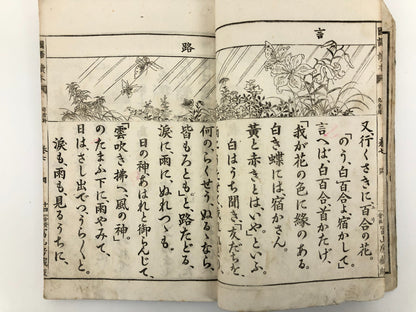 言
又行くさきに百合の花。
「のう、白百合よ、宿かして」
言へば、白百合、首かたげ、
「我が花の色に縁のある
白き蝶には宿かさん。
黄と赤きとはいや」といふ。
白はうち聞き、友だちを、
路
何の、らくせう、ぬるゝなら、
皆もろとも」と、路たどる、
涙に、雨に、ぬれつゝも。
日の神あはれと御らんじて、
「雲吹き拂へ、風の神」
のたまふ下に雨やみて、
日は、さし出でつうらくと。
涙も、雨も、見るうちに、